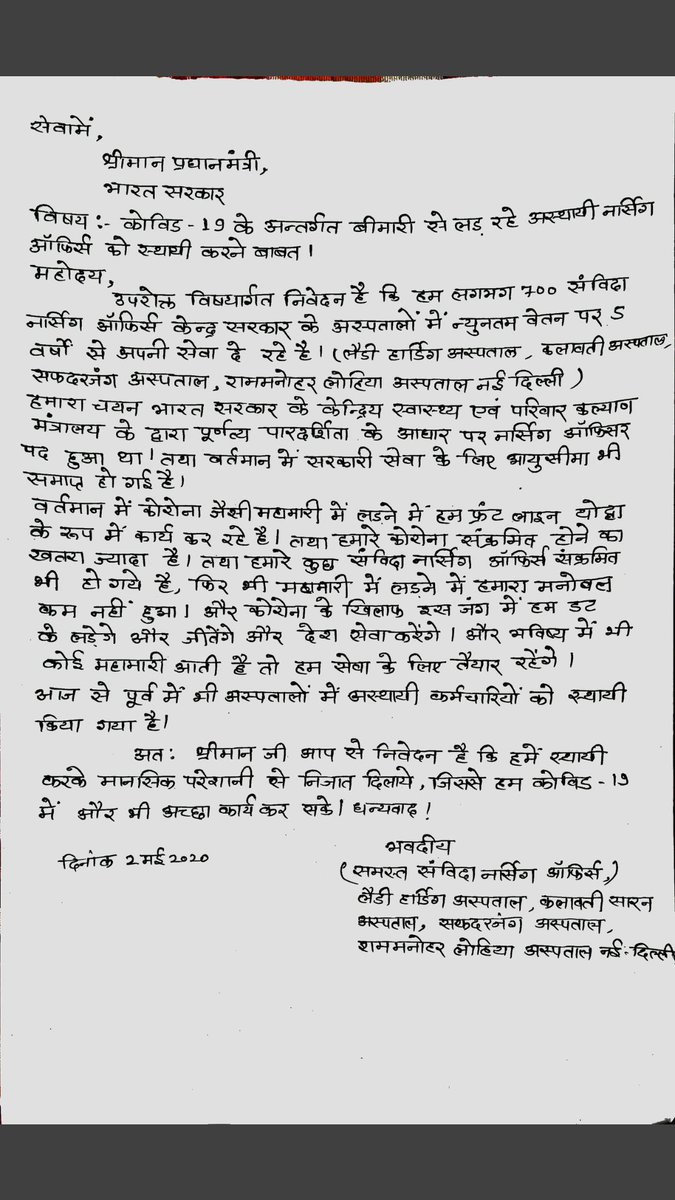 सेवामें,
श्रीमान प्रधानमंत्री,
भारत सरकार
विषय :- कोविड - 19 के अन्तर्गत बीमारी से लड़ रहे अस्थायी नर्सिंग
ऑफिर्स को स्थायी करने बाबत।
महोदय,
उपरोक्त विषयार्गत निवेदन है कि हम लगभग 700 संविदा
नर्सिग ऑफिर्स केन्द्र सरकार के अस्पतालों में न्युनतम वेतन पर 5
वर्षो से अपनी सेवा दे रहे है। (लैडी हार्डिग अस्पताल, कलावती अस्पताल,
सफदरजंग अस्पताल, राममनोहर लोहिया अस्पताल नई दिल्ली)
हमारा चयन भारत सरकार के केन्द्रिय स्वास्थ्य एवं परिवार कल्याण
मंत्रालय के द्वारा पूर्णत्य पारदर्शिता के आधार पर नर्सिग ऑफिसर
पद हुआ था। तथा वर्तमान में सरकारी सेवा के लिए आयुसीमा भी
समाप्त हो गई है।
वर्तमान में कोरोना जैसी महामारी में लड़ने में हम फ्रंट लाइन योद्धा
के रूप में कार्य कर रहे है। तथा हमारे कोरोना संक्रमित होने का
खतरा ज्यादा है। तथा हमारे कुछ संविदा नर्सिग ऑफिर्स संक्रमित
भी हो गये है, फिर भी महामारी में लड़ने में हमारा मनोबल
कम नहीं हुआ। और कोरोना के खिलाफ इस जंग में हम डट
के लड़ेगे और जीतेंगे और देश सेवा करेंगे। और भविष्य में भी
कोई महामारी आती है तो हम सेवा के लिए तैयार रहेंगे।
आज से पूर्व में भी अस्पतालों में अस्थायी कर्मचारियों को स्थायी
किया गया है।
अत: श्रीमान जी आप से निवेदन है कि हमें स्थायी
करके मानसिक परेशानी से निजात दिलाये, जिससे हम कोविड - 19
में और भी अच्छा कार्य कर सके। धन्यवाद!
भवदीय
दिनांक 2 मई 2020
(समस्त संविदा नर्सिग ऑफिर्स,)
लैडी हार्डिग अस्पताल, कलावती सारन
अस्पताल, सफदरजंग अस्पताल,
राममनोहर लोहिया अस्पताल नई-दिल्ली